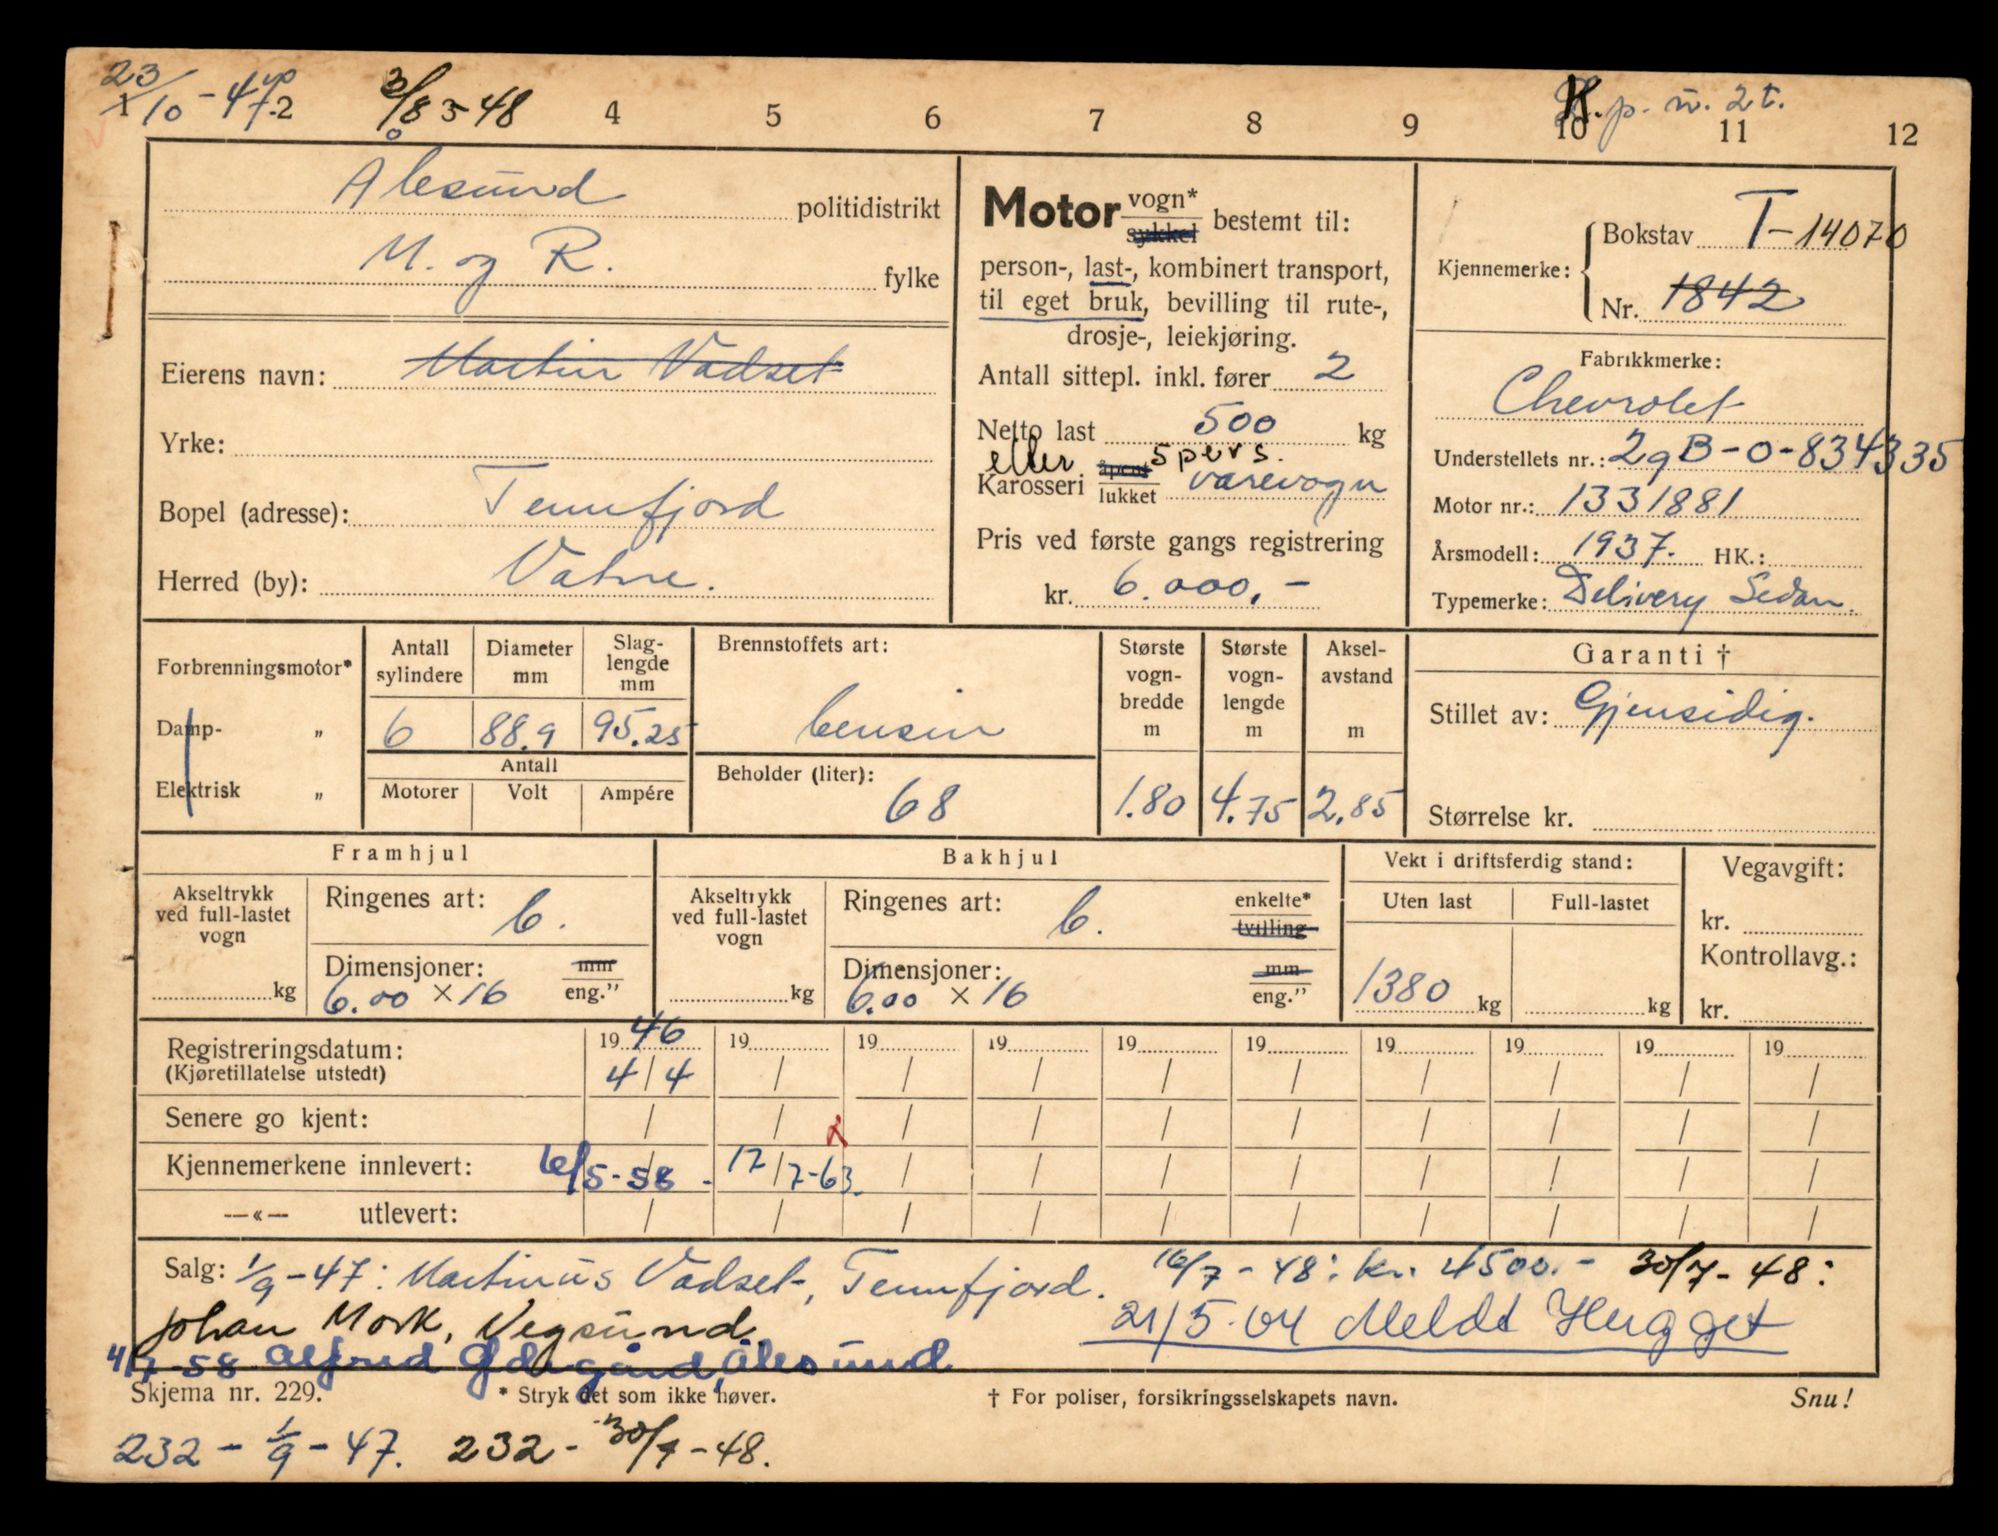 23/10-47 2 3/8 - 48 4 5 6 7 8 9 10 11 12
p. n. 2 t.
Ålesund politidistrikt
M. og R. fylke
Eierens navn: Martin Vadset
Yrke:
Bopel (adresse): Tennfjord
Herred (by): Vatne.
Motor vogn* sykkel bestemt til:
person-, last-, kombinert transport,
til eget bruk, bevilling til rute-,
drosje-, leiekjøring.
Antall sittepl. inkl. fører 2
Netto last 500 kg
eller 5 pers.
Karosseri åpent lukket varevogn
Pris ved første gangs registrering
kr. 6.000,-
Kjennemerke: Bokstav T-14070
Nr. 1842
Fabrikkmerke:
Chevrolet
Understellets nr.: 2gB-0-834335
Motor nr.: 1331881
Årsmodell: 1937. HK.:
Typemerke: Delivery Sedan.
Forbrenningsmotor*
Damp- „
Elektrisk „
Antall sylindere 6
Diameter mm 88.9
Slag-lengde mm 95.25
Antall
Motorer Volt Ampére
Brennstoffets art:
bensin
Beholder (liter):
68
Største vogn-bredde m 1.80
Største vogn-lengde m 4.75
Aksel-avstand m 2.85
Garanti †
Stillet av: Gjensidig.
Størrelse kr.
Framhjul
Akseltrykk ved full-lastet vogn
kg
Ringenes art: b.
Dimensjoner: mm
6.00 × 16 eng.”
Bakhjul
Akseltrykk ved full-lastet vogn
kg
Ringenes art: b. enkelte* tvilling
Dimensjoner: mm
6.00 × 16 eng.”
Vekt i driftsferdig stand:
Uten last Full-lastet
1380 kg kg
Vegavgift:
kr.
Kontrollavg.:
kr.
Registreringsdatum: 1946 19 19 19 19 19 19 19 19 19
(Kjøretillatelse utstedt) 4/4 / / / / / / / / /
Senere go kjent: / / / / / / / / / /
Kjennemerkene innlevert: 6/5-58. 17/7-63. / / / / / / / /
—«— utlevert: / / / / / / / / / /
Salg: 1/9-47: Martinus Vadset, Tennfjord. 16/7-48: kr. 4500.- 30/7-48:
Johan Mork, Vegsund. 21/5-64 Meldt Hugget
4/7-58 Alfred Ødegård, Ålesund
Skjema nr. 229. * Stryk det som ikke høver. † For poliser, forsikringsselskapets navn. Snu!
232 - 1/9-47. 232 - 30/7-48.